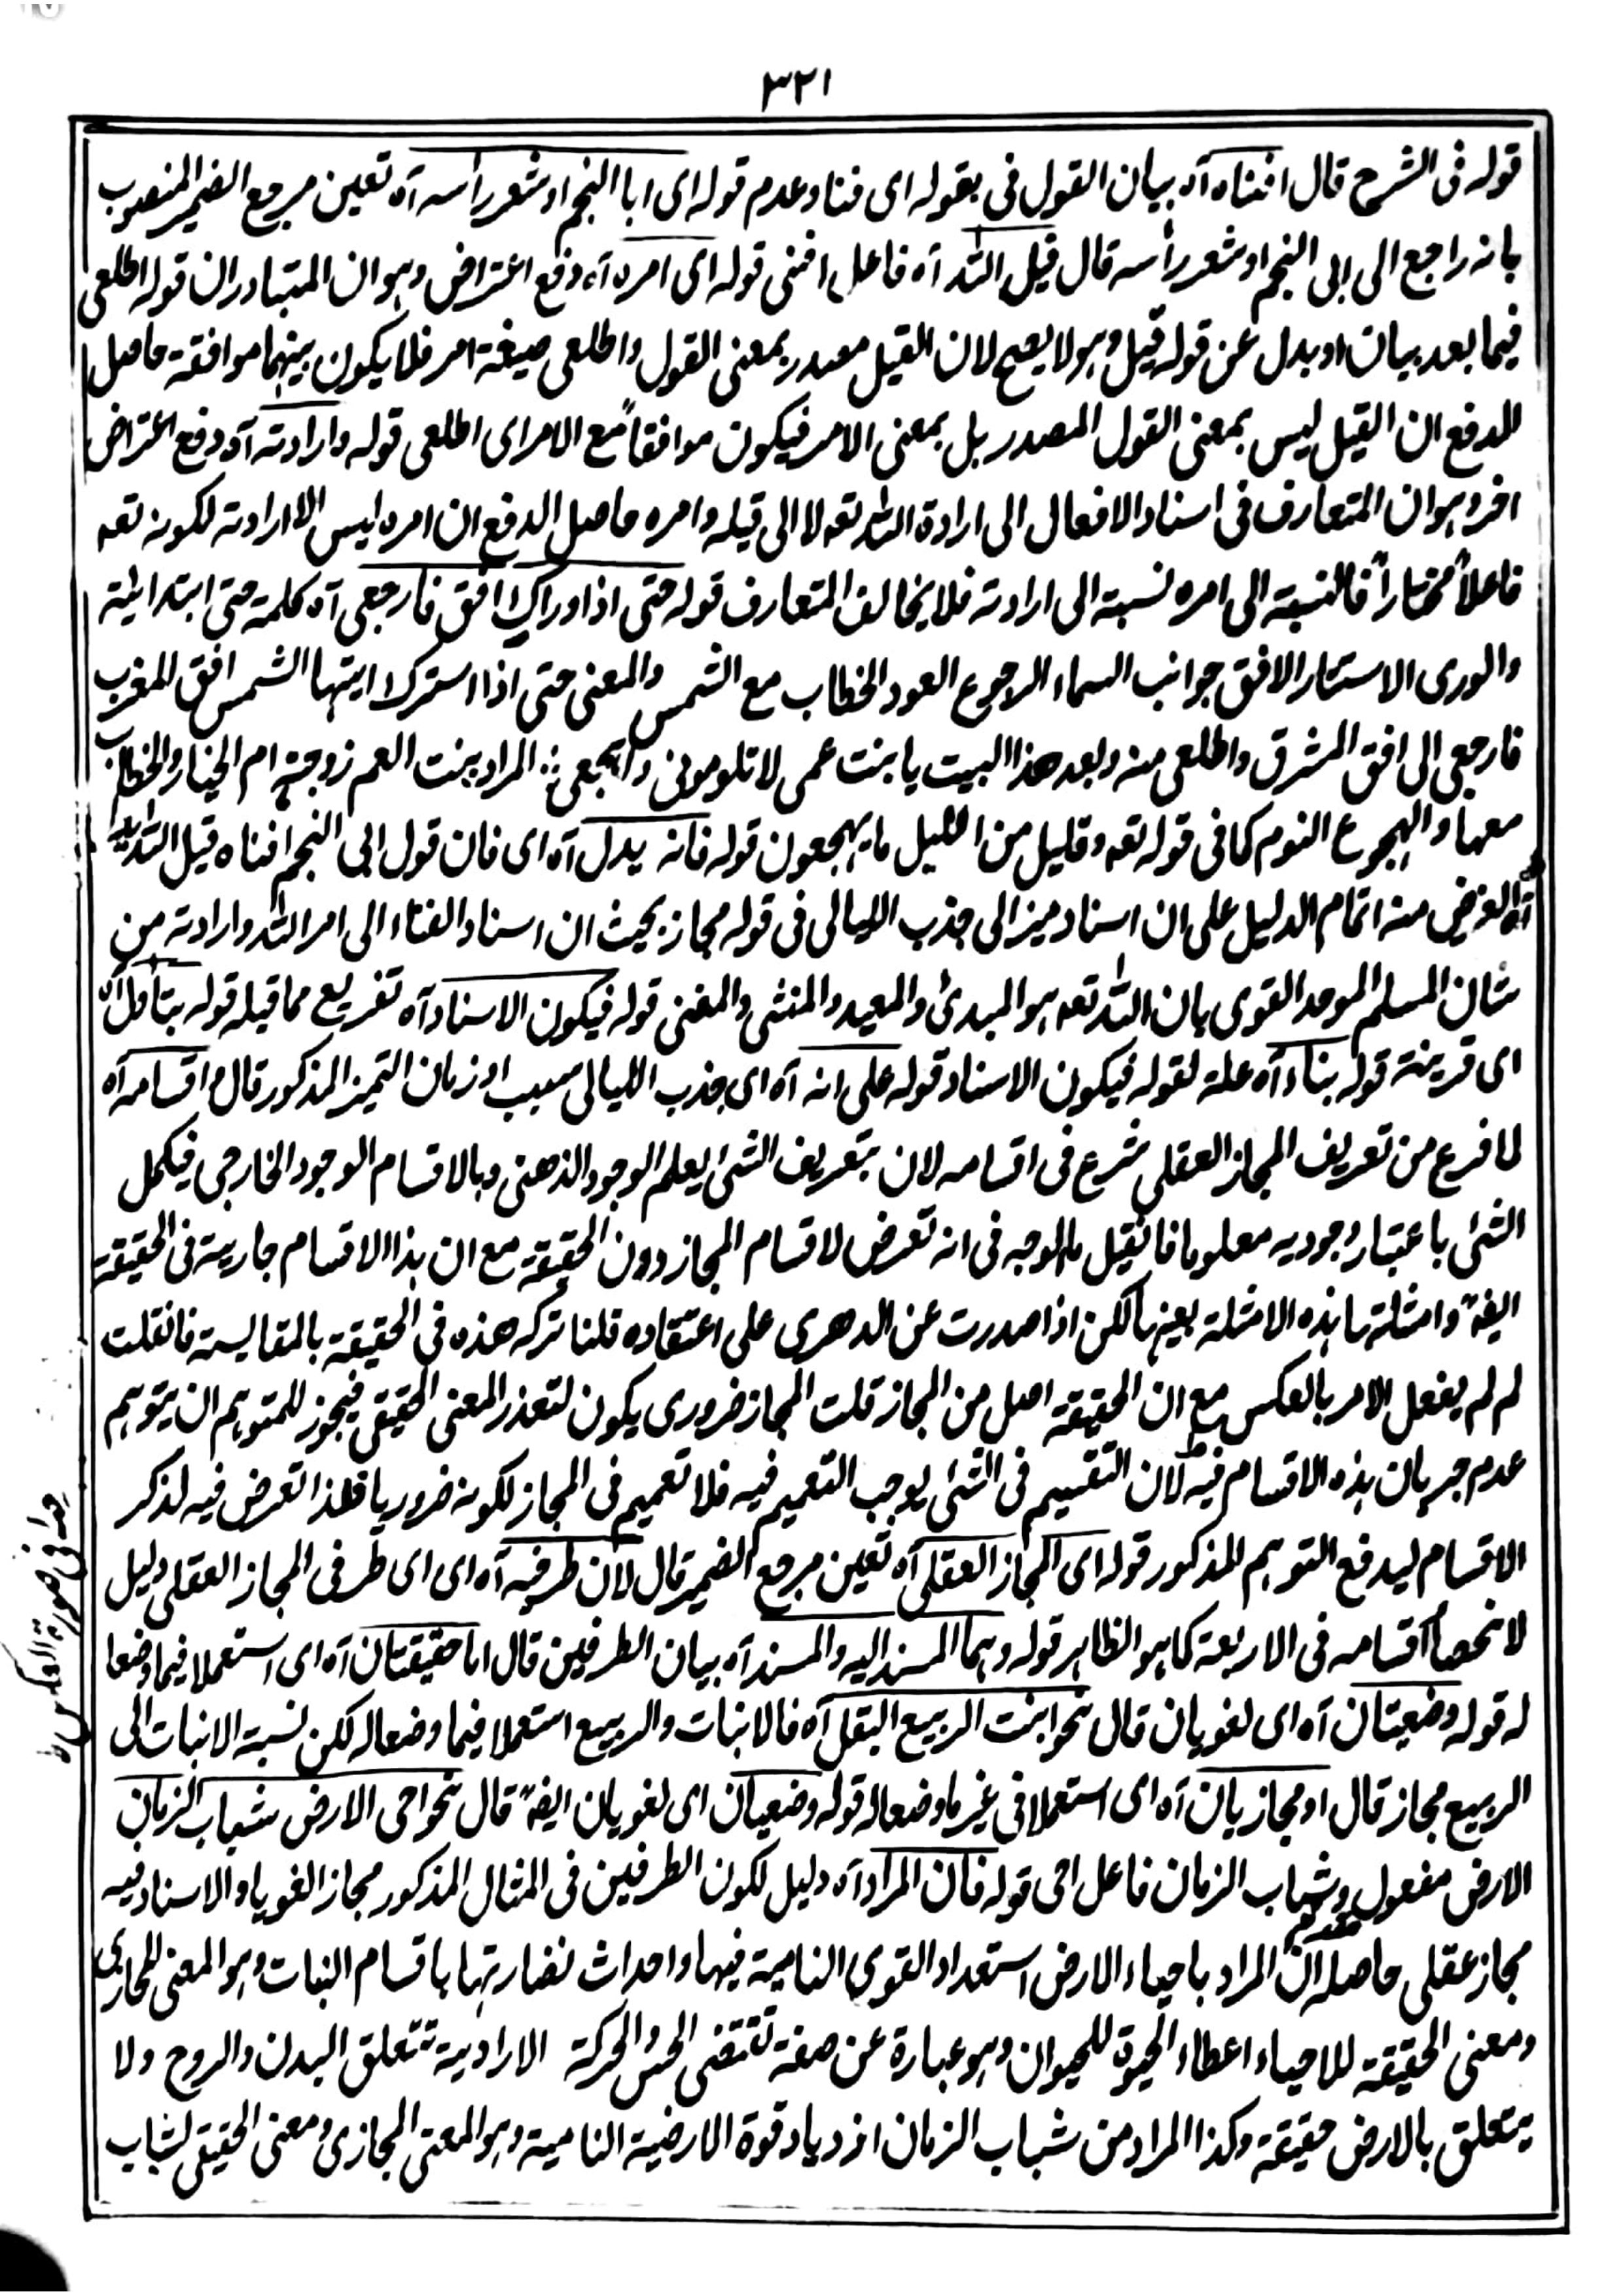 ٣٢١
قوله فى الشرح قال افناه آه بيان القول فى بقوله اى فنا وعدم قوله اى ابا النجم او شعر رأسه آه تعين مرجع الضمير المنصوب
بانه راجع الى ابى النجم او شعر رأسه قال قيل الله آه فاعل افنى قوله اى امره آه دفع اعتراض وهو ان المتبادر ان قوله اطلعى
فيما بعد بيان او بدل عن قوله قيل وهو لا يصح لان القيل مصدر بمعنى القول واطلعى صيغة امر فلا يكون بينهما موافقة حاصل
الدفع ان القيل ليس بمعنى القول المصدر بل بمعنى الامر فيكون موافقاً مع الامر اى اطلعى قوله وارادته آه دفع اعتراض
اخر وهو ان المتعارف فى اسناد الافعال الى ارادة الله تعه لا الى قيله وامره حاصل الدفع ان امره ليس الا ارادته لكونه تعه
فاعلاً مختاراً فالنسبة الى امره نسبة الى ارادته فلا يخالف المتعارف قوله حتى اذا واراك افق فارجعى آه كلمة حتى ابتدائية
والورى الاستتار الافق جوانب السماء الرجوع العود الخطاب مع الشمس والمعنى حتى اذا استرك ايتها الشمس افق المغرب
فارجعى الى افق المشرق واطلعى منه وبعد هذا البيت يا بنت عمى لا تلومونى واهجعى المراد ببنت العم زوجته ام الخيار والخطاب
معها والهجوع النوم كما فى قوله تعه وقليل من الليل ما يهجعون قوله فانه يدل آه اى فان قول ابى النجم افناه قيل الله
آه الغرض منه اتمام الدليل على ان اسناد ميز الى جذب الليالى فى قوله مجاز بحيث ان اسناد الفناء الى امر الله وارادته من
شان المسلم الموحد القوى بان الله تعه هو المبدئ والمعيد والمنشى والمفنى قوله فيكون الاسناد آه تفريع مما قبله قوله بتأول آه
اى قرينة قوله بناء آه علة لقوله فيكون الاسناد قوله على انه آه اى جذب الليالى سبب او زمان التميز المذكور قال م اقسامه آه
لما فرع من تعريف المجاز العقلى شرع فى اقسامه لان بتعريف الشئ يعلم الوجود الذهنى وبالاقسام الوجود الخارجى فيكمل
الشئ باعتبار وجوديه معلوما فانقيل ما الوجه فى انه تعرض لاقسام المجاز دون الحقيقة مع ان هذا الاقسام جارية فى الحقيقة
ايضه وامثلتها هذه الامثلة بعينها لكن اذا صدرت عن الدهرى على اعتقاده قلنا تركه هذه فى الحقيقة بالمقايسة فانقلت
لم لم يفعل الامر بالعكس مع ان الحقيقة اصل من المجاز قلت المجاز ضرورى يكون لتعذر المعنى الحقيقى فيجوز للمتوهم ان يتوهم
عدم جريان هذه الاقسام فيه لان التقسيم فى الشئ يوجب التعميم فيه فلا تعميم فى المجاز لكونه ضروريا فلذا تعرض فيه لذكر
الاقسام ليدفع التوهم المذكور قوله اى المجاز العقلى آه تعين مرجع الضمير قال لان طرفيه آه اى اى طرفى المجاز العقلى دليل
لانحصار اقسامه فى الاربعة كما هو الظاهر قوله وهما المسند اليه والمسند آه بيان الطرفين قال اما حقيقتان آه اى استعملا فيما وضعا
له قوله وضعيتان آه اى لغويان قال نحو انبت الربيع البقل آه فالانبات والربيع استعملا فيما وضعا له لكن نسبة الانبات الى
الربيع مجاز قال او مجازيان آه اى استعملا فى غير ما وضعا له قوله وضعيان اى لغويان ايضه قال نحو احى الارض شباب الزمان
الارض مفعول مقدم وشباب الزمان فاعل احى قوله فان المراد آه دليل لكون الطرفين فى المثال المذكور مجاز الغويا والاسناد فيه
مجاز عقلى حاصله ان المراد باحياء الارض استعداد القوى النامية فيها واحداث نضارتها باقسام النبات وهو المعنى المجازى
ومعنى الحقيقة للاحياء اعطاء الحيوة للحيوان وهو عبارة عن صفة تقتضى الحس والحركة الارادية تتعلق البدن والروح ولا
يتعلق بالارض حقيقة وكذا المراد من شباب الزمان ازدياد قوة الارضية النامية وهو المعنى المجازى ومعنى الحقيقى لشباب
فى صورة العكس